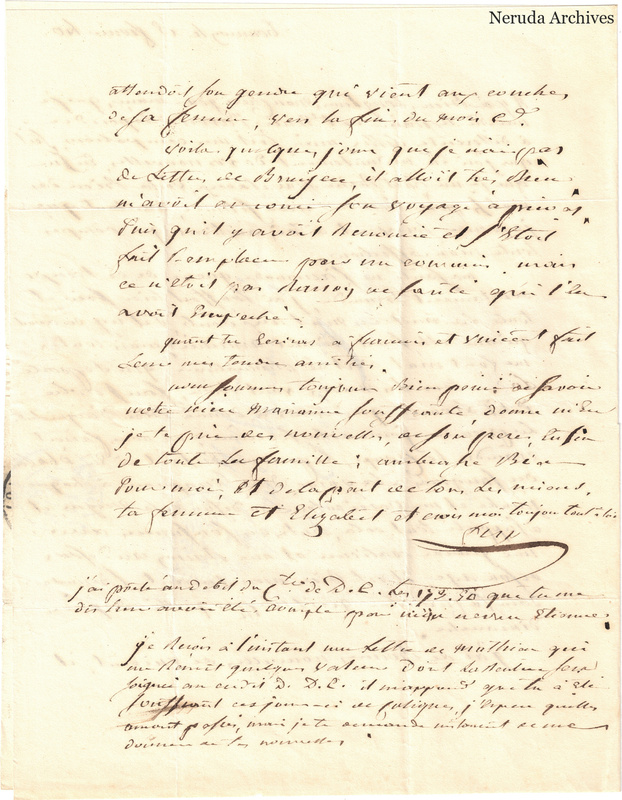 Neruda Archives
attendoit son gendre qui vient aux couches
de sa femme, vers la fin du mois Ct.
Voila quelques jours que je n'ai pas
de Lettres de il alloit très Bien
m'avoit annoncé son voyage à
puis qu'il y avoit Renoncé et s'Etoit
fait Remplacer par un commis mais
ce n'étoit pas Raison de santé qui l'en
avoit Empeché.
quant tu Ecriras a et Vincent fait
Leur mes tendre amitiés.
nous sommes toujours Bien peiné de savoir
notre nièce Marianne souffrante, donne m'en
je te prie des nouvelles, de son pere, Enfin
de toute La famille; embrasse Bien
Pour moi, Et de la part de tous Les miens,
ta femme et Elizabeth et crois moi toujou tout a toi
j'ai porté au debit du Cte de D. L. Les que tu me
dis lui avoir été compté pour neveu Etienne.
je Reçois à l'instant une Lettre de Mathieu qui
me Remet quelques valeurs Dont Le sera
soigné au credit D. D. L. il m'apprend que tu à été
souffrant ces jours ci de fatigues, j'espere qu'elles
seront passés, mais je te demande instament de me
donner de tes nouvelles.